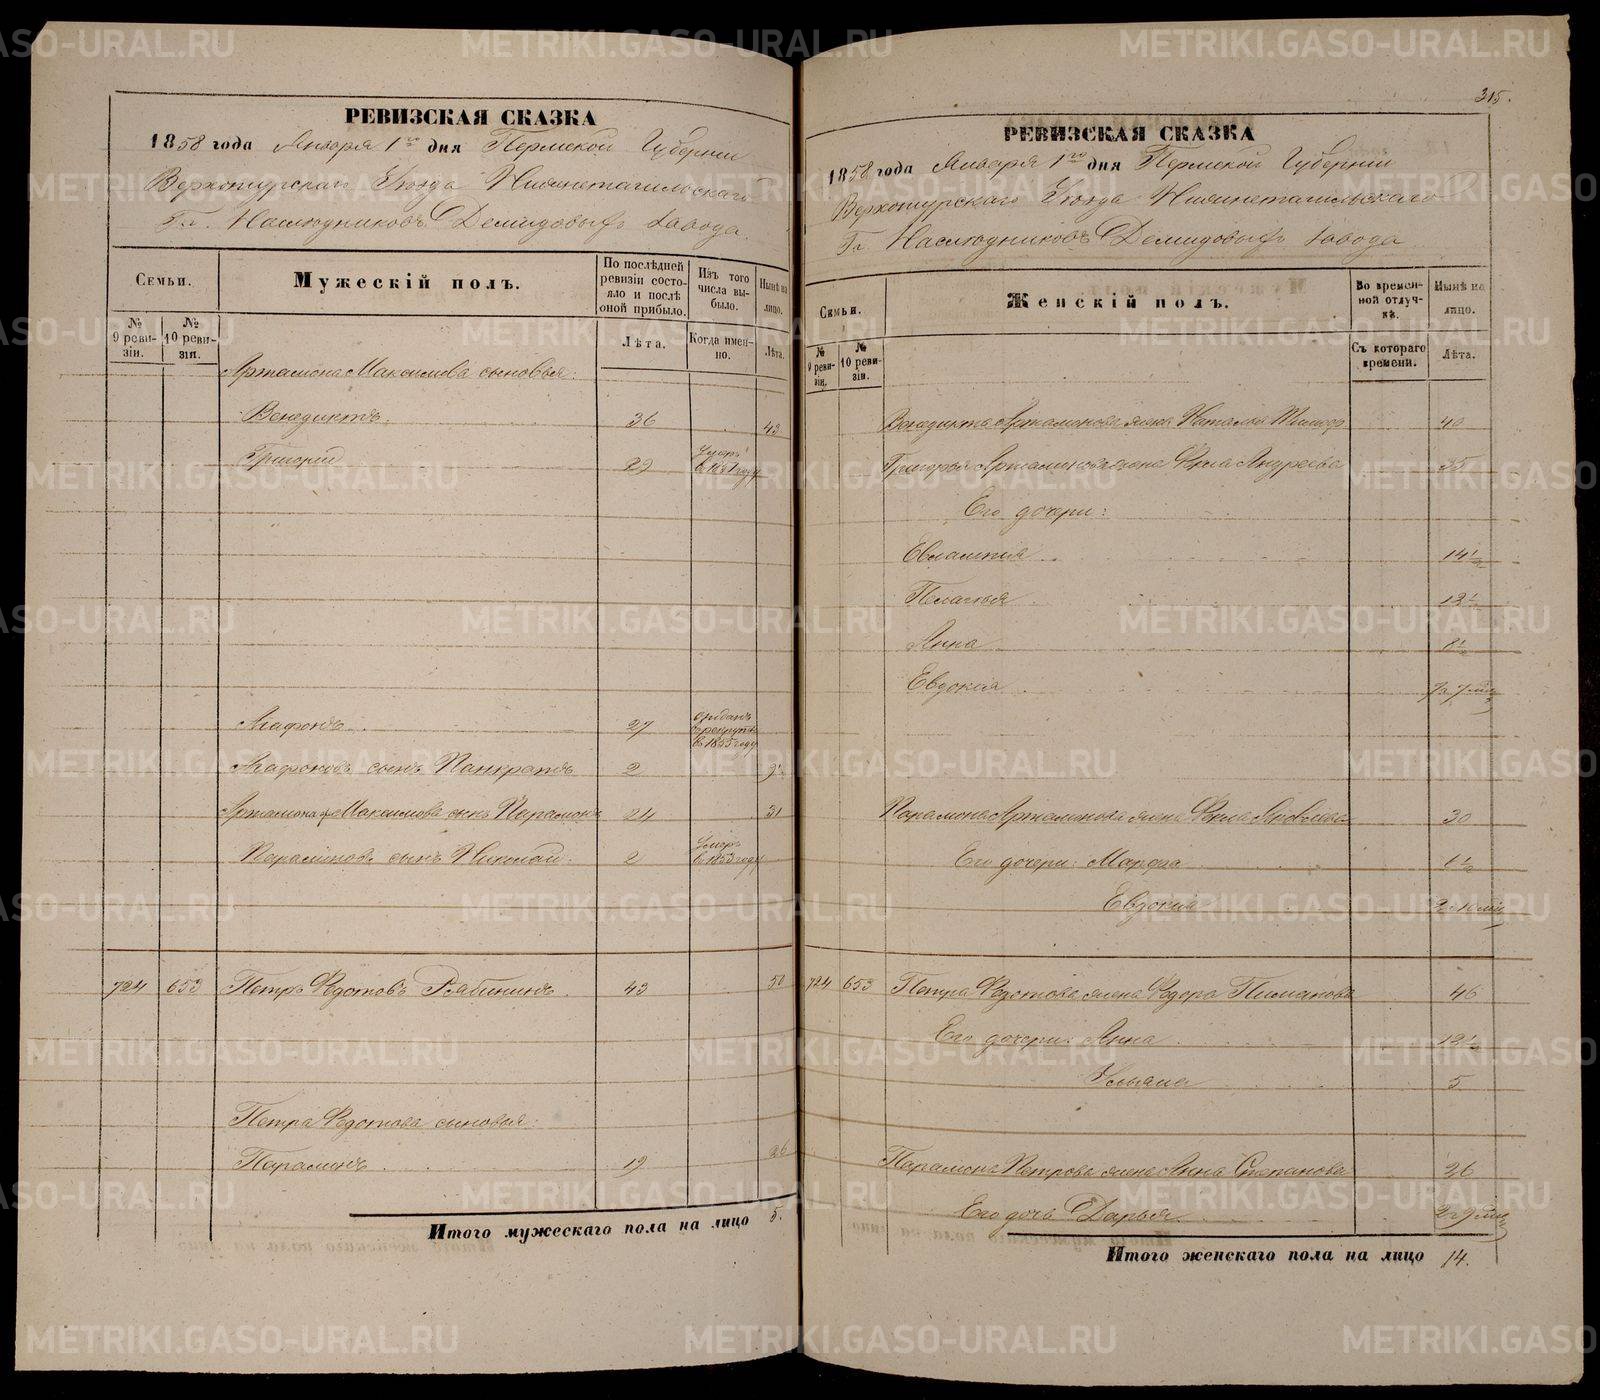 РЕВИЗСКАЯ СКАЗКА
1858 года Января 1го дня Пермской Губернии
Верхотурскаго Уезда Нижнетагильскаго
Гг. Наследниковъ Демидовыхъ завода
Семьи.
Мужескій полъ.
По послѣдней ревизіи состояло и послѣ оной прибыло.
Изъ того числа выбыло.
Нынѣ на лицо.
№ 9 ревизіи.
№ 10 ревизіи.
Лѣта.
Когда именно.
Лѣта.
Артамона Максимова сыновья:
Венедиктъ 36 43
Григорій 29 Умеръ въ 1851 году
Агафонъ 27 отданъ въ рекруты въ 1855 году
Агафоновъ сынъ Панкратъ 2 9½
Артамона Максимова сынъ Парамонъ 24 31
Парамоновъ сынъ Николай 2 Умеръ въ 1853 году
724 653 Петръ Федотовъ Рябининъ 43 50
Петра Федотова сыновья:
Парамонъ 19 26
Итого мужескаго пола на лицо 5.
315.
РЕВИЗСКАЯ СКАЗКА
1858 года Января 1го дня Пермской Губернии
Верхотурскаго Уезда Нижнетагильскаго
Гг. Наследниковъ Демидовыхъ завода
Семьи.
Женскій полъ.
Во временной отлучкѣ.
Нынѣ на лицо.
№ 9 ревизіи.
№ 10 ревизіи.
Съ котораго времени.
Лѣта.
Венедикта Артамонова жена Наталья 40
Григорья Артамонова жена Фекла Андреева 35
Его дочери:
Евлампия 14½
Пелагья 13½
Анна 8½
Евдокия 7 м
Парамона Артамонова жена Фекла Яковлева 30
Его дочери: Марфа
Евдокия
724 653 Петра Федотова жена Федора Пиманова 46
Его дочери: Анна 13½
Ульяна 5
Парамона Петрова жена Анна Степанова 26
Его дочь Дарья
Итого женскаго пола на лицо 14.
METRIKI.GASO-URAL.RU